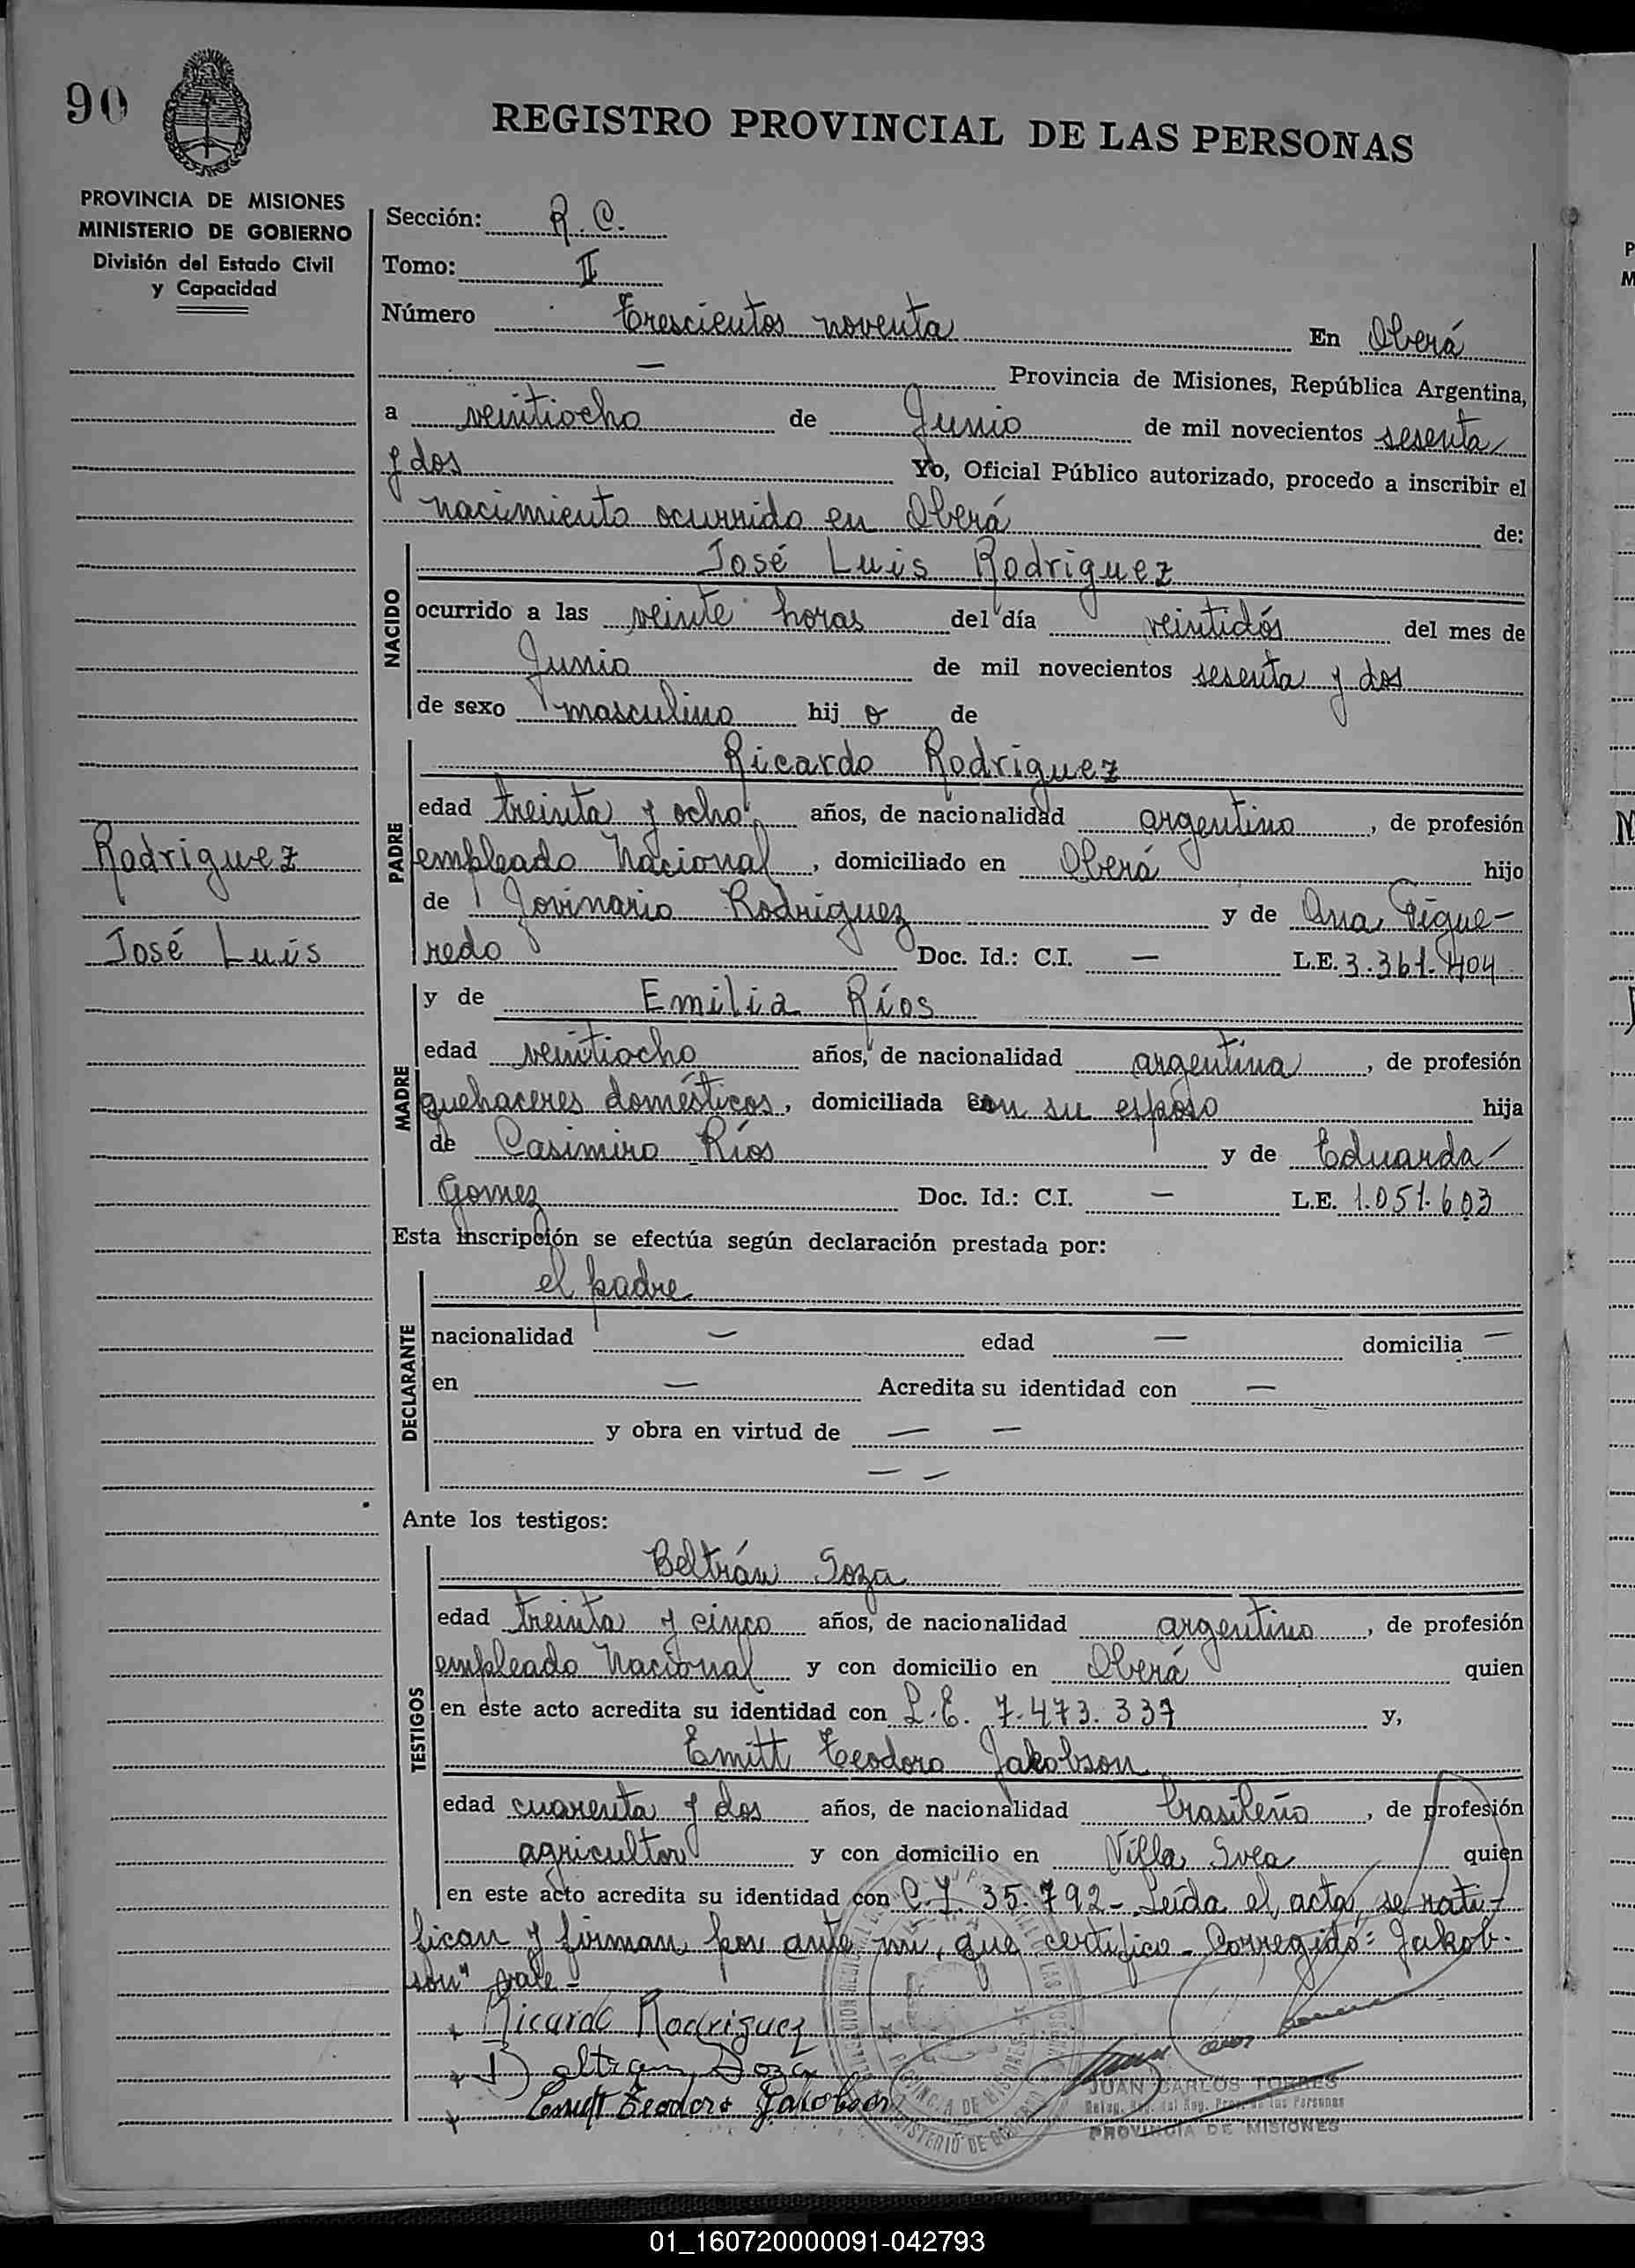 90
REGISTRO PROVINCIAL DE LAS PERSONAS
PROVINCIA DE MISIONES
MINISTERIO DE GOBIERNO
División del Estado Civil
y Capacidad
Sección: R. C.
Tomo: II
Número Trescientos noventa En Oberá
— Provincia de Misiones, República Argentina,
a veintiocho de Junio de mil novecientos sesenta
y dos Yo, Oficial Público autorizado, procedo a inscribir el
nacimiento ocurrido en Oberá de:
NACIDO
José Luis Rodriguez
ocurrido a las veinte horas del día veintidós del mes de
Junio de mil novecientos sesenta y dos
de sexo masculino hij o de
PADRE
Ricardo Rodriguez
edad treinta y ocho años, de nacionalidad argentino, de profesión
Rodriguez
empleado Nacional, domiciliado en Oberá hijo
de Jovinario Rodriguez y de Ana Figue-
José Luis
redo Doc. Id.: C.I. — L.E. 3.361.404
MADRE
y de Emilia Ríos
edad veintiocho años, de nacionalidad argentina, de profesión
quehaceres domésticos, domiciliada con su esposo hija
de Casimiro Ríos y de Eduarda
Gomez Doc. Id.: C.I. — L.E. 1.051.603
Esta inscripción se efectúa según declaración prestada por:
DECLARANTE
el padre
nacionalidad — edad — domicilia —
en — Acredita su identidad con —
y obra en virtud de — —
— —
Ante los testigos:
TESTIGOS
Beltrán Soza
edad treinta y cinco años, de nacionalidad argentino, de profesión
empleado Nacional y con domicilio en Oberá quien
en este acto acredita su identidad con L.E. 7.473.337 y,
Emitt Teodoro Jakobson
edad cuarenta y dos años, de nacionalidad brasileño, de profesión
agricultor y con domicilio en Villa Svea quien
en este acto acredita su identidad con C.I. 35.792- Leída el acta, se rati-
fican y firman por ante mí, que certifico- Corregido: Jakob-
son" vale-
Ricardo Rodriguez
Beltran Soza
Emitt Teodoro Jakobson
JUAN CARLOS TORRES
PROVINCIA DE MISIONES
01_160720000091-042793